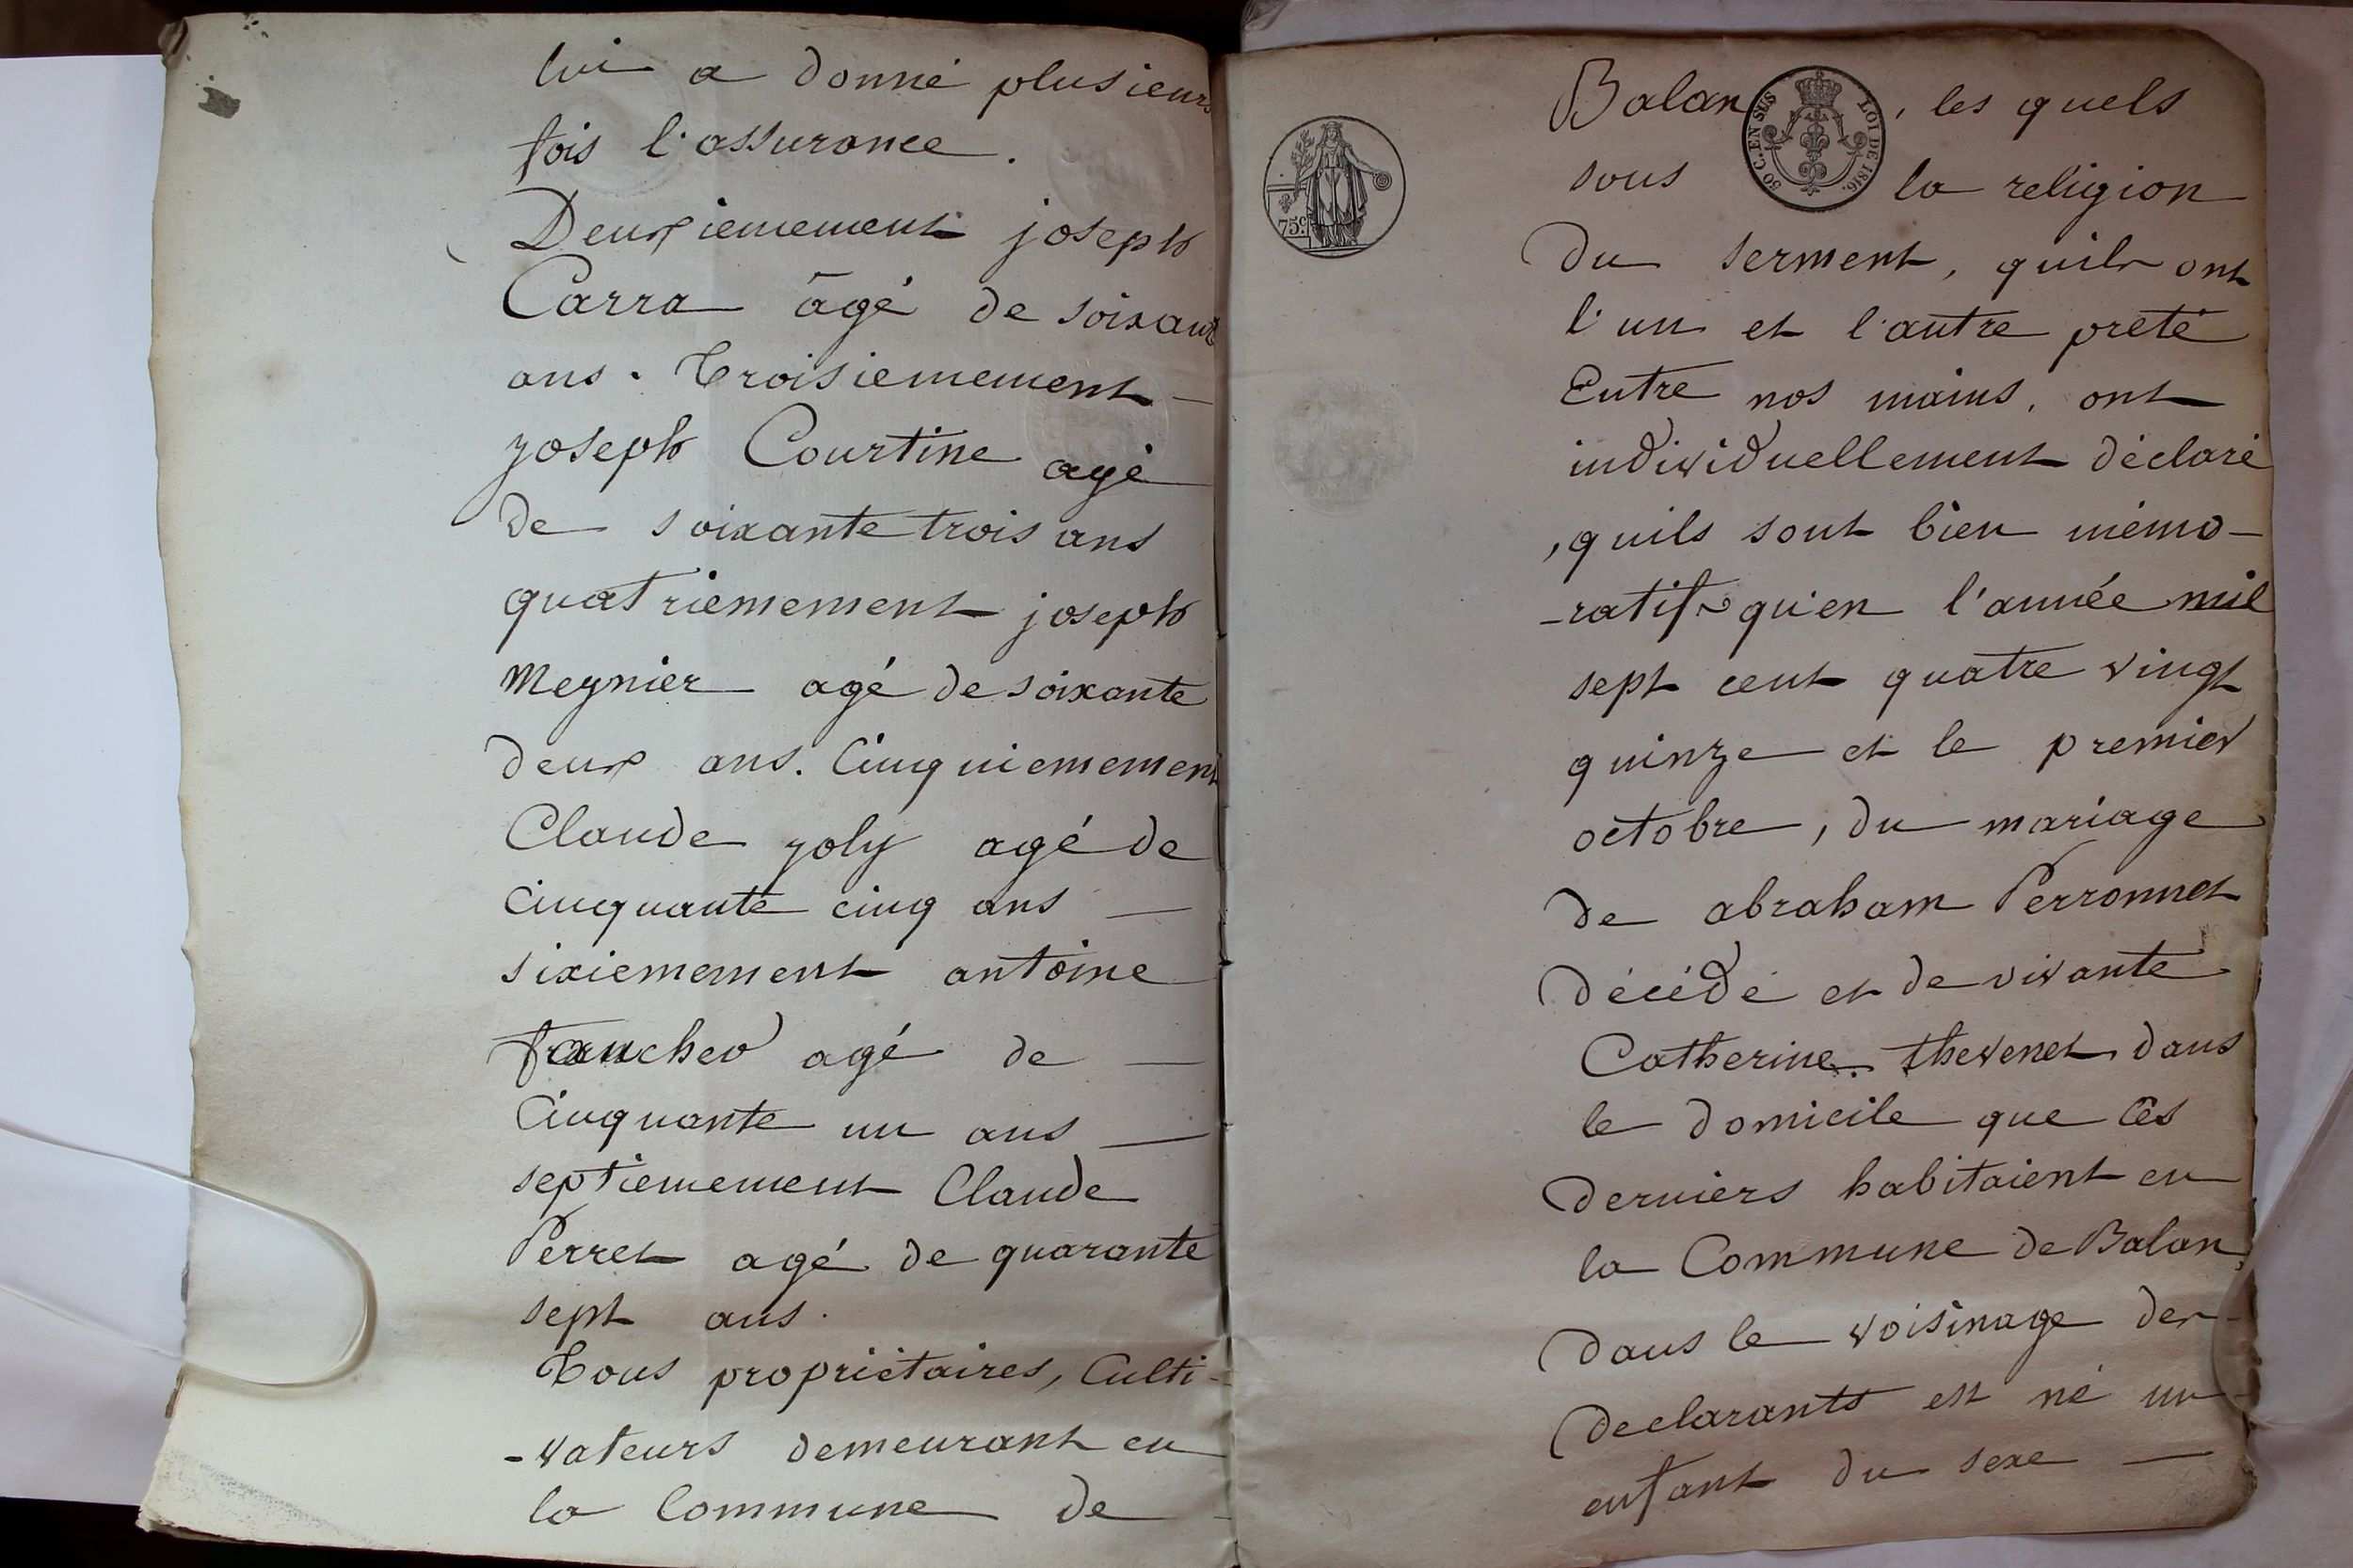 lui a donné plusieurs
fois l'assurance.
Deuxiemement joseph
Carra âgé de soixante
ans. Troisiemement
joseph Courtine agé
de soixante trois ans
quatriemement joseph
Meynier agé de soixante
deux ans. Cinquiemement
Claude joly agé de
cinquante cinq ans
sixiemement antoine
agé de
Cinquante un ans
septiemement Claude
Perret agé de quarante
sept ans.
Tous propriétaires, Culti-
-vateurs demeurant en
la Commune de
75c.
50 C. EN SUS
LOI DE 1816.
Balan, les quels
sous la religion
du serment, quils ont
l'un et l'autre preté
Entre nos mains, ont
individuellement déclaré
, quils sont bien mémo-
-ratifs qu'en l'année mil
sept cent quatre vingt
quinze et le premier
octobre, du mariage
de abraham Perronnet
décédé et de vivante
Catherine thevenet dans
le domicile que ces
derniers habitaient en
la Commune de Balan,
dans le voisinage des
declarants est né un
enfant du sexe